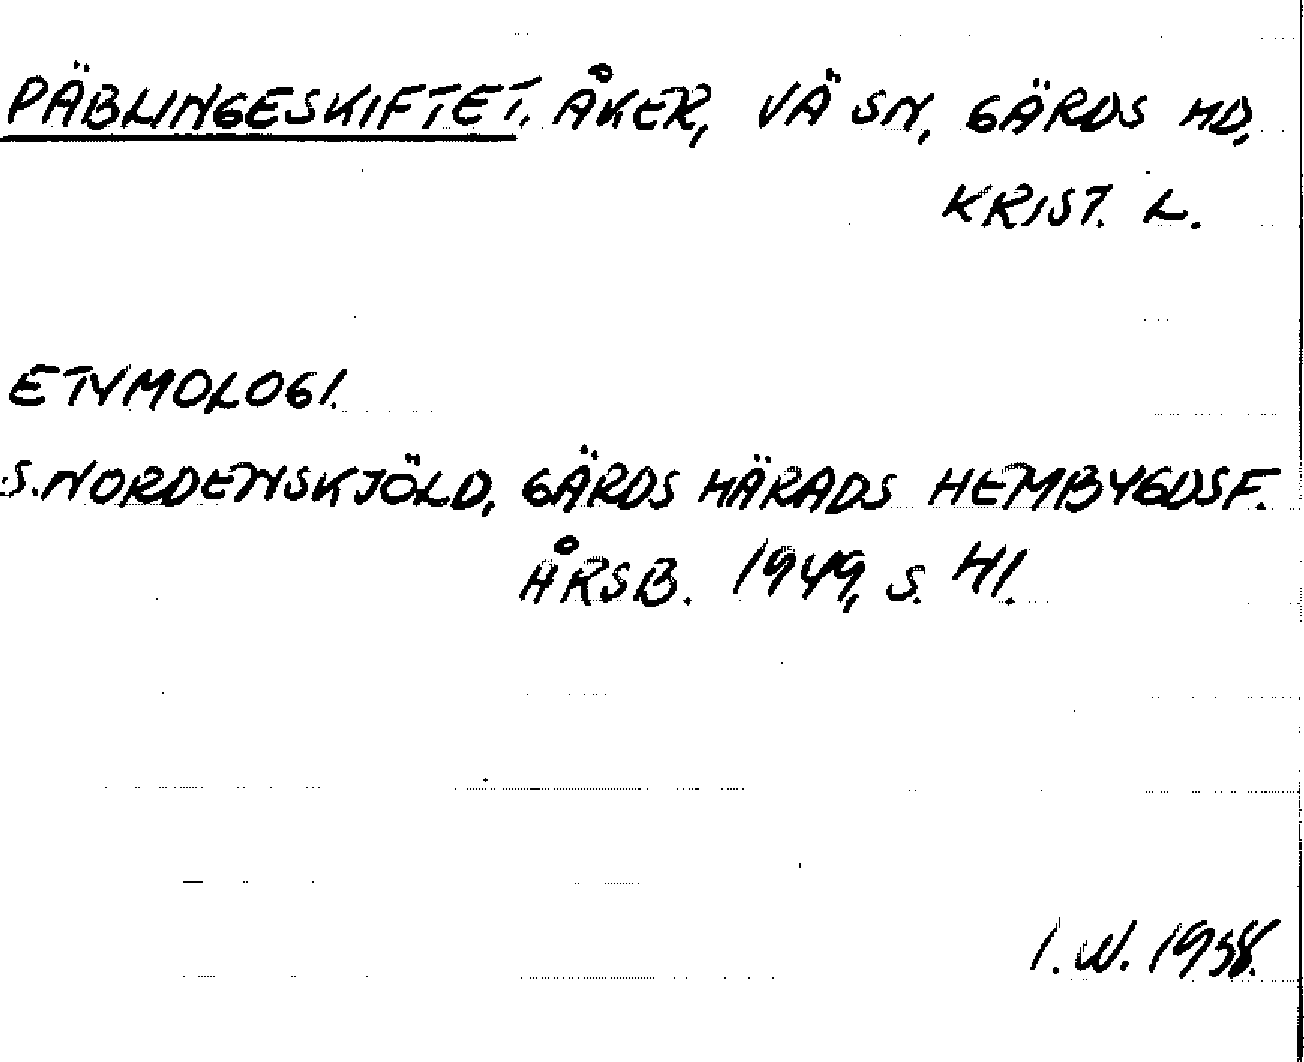 PÄBLINGESKIFTET, ÅKER, VÄ SN, GÄRDS HD,
KRIST. L.
ETYMOLOGI.
S. NORDENSKJÖLD, GÄRDS HÄRADS HEMBYGDSF.
ÅRSB. 1949, S. 41.
I.W. 1958.